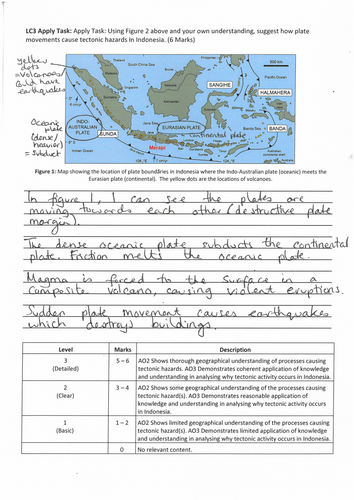 LC3 Apply Task: Apply Task: Using Figure 2 above and your own understanding, suggest how plate
movements cause tectonic hazards In Indonesia. (6 Marks)
yellow
dots
=volcanoes/
could have
earthquakes
Oceanic
plate
(dense/
heavier)
= Subduct
500 km
South China Sea
Pacific Ocean
SANGIHE
HALMAHERA
INDO
AUSTRALIAN
PLATE
SUNDA
Java Sea
EURASIAN PLATE
continental plate
Banda Sea
BANDA
Merapi
Indian Ocean
Figure 1: Map showing the location of plate boundaries in Indonesia where the Indo-Australian plate (oceanic) meets the
Eurasian plate (continental). The yellow dots are the locations of volcanoes.
In figure 1, I can see the plates are
moving towards each other (destructive plate
margin).
The dense oceanic plate subducts the continental
plate. Friction melts the oceanic plate.
Magma is forced to the surface in a
composite volcano, causing violent eruptions.
Sudden plate movement causes earthquakes
which destroys buildings.
Level Marks Description
3 5 – 6 AO2 Shows thorough geographical understanding of processes causing
(Detailed) tectonic hazards. AO3 Demonstrates coherent application of knowledge
and understanding in analysing why tectonic activity occurs in Indonesia.
2 3 – 4 AO2 Shows some geographical understanding of the processes causing
(Clear) tectonic hazard(s). AO3 Demonstrates reasonable application of
knowledge and understanding in analysing why tectonic activity occurs
in Indonesia.
1 1 – 2 AO2 Shows limited geographical understanding of the processes causing
(Basic) tectonic hazard(s). AO3 Demonstrates limited application of knowledge
and understanding in analysing why tectonic activity occurs in Indonesia.
0 No relevant content.